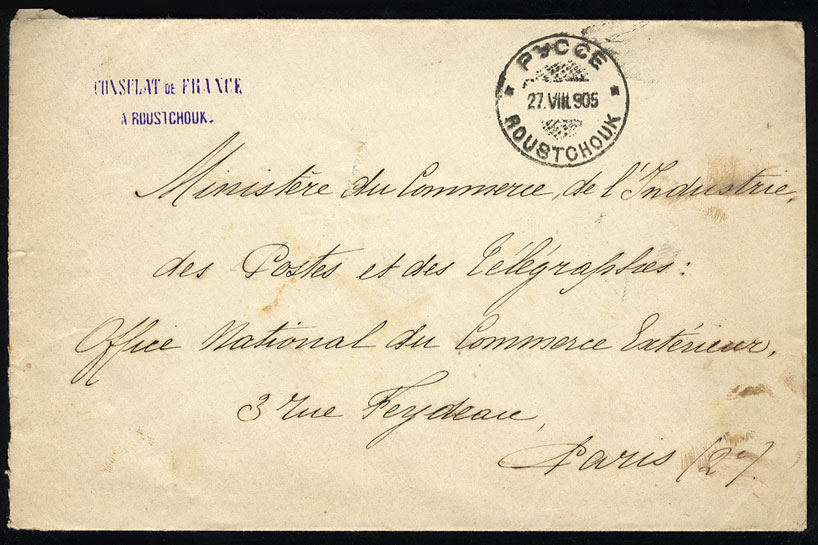 CONSULAT DE FRANCE
A ROUSTCHOUK.
РУССЕ
27.VIII.905
ROUSTCHOUK
Ministère du Commerce, de l'Industrie,
des Postes et des Télégraphes:
Office National du Commerce Extérieur,
3 rue Feydeau,
Paris (2e).